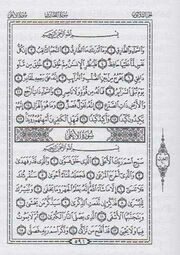 الجزء الثلاثون سورة الطارق سورة الأعلى
بِسْمِ اللَّهِ الرَّحْمَٰنِ الرَّحِيمِ
وَالسَّمَاءِ وَالطَّارِقِ ١ وَمَا أَدْرَاكَ مَا الطَّارِقُ ٢ النَّجْمُ الثَّاقِبُ ٣
إِن كُلُّ نَفْسٍ لَّمَّا عَلَيْهَا حَافِظٌ ٤ فَلْيَنظُرِ الْإِنسَانُ مِمَّ خُلِقَ ٥ خُلِقَ
مِن مَّاءٍ دَافِقٍ ٦ يَخْرُجُ مِن بَيْنِ الصُّلْبِ وَالتَّرَائِبِ ٧ إِنَّهُ عَلَىٰ رَجْعِهِ لَقَادِرٌ ٨
يَوْمَ تُبْلَى السَّرَائِرُ ٩ فَمَا لَهُ مِن قُوَّةٍ وَلَا نَاصِرٍ ١٠ وَالسَّمَاءِ ذَاتِ الرَّجْعِ ١١
وَالْأَرْضِ ذَاتِ الصَّدْعِ ١٢ إِنَّهُ لَقَوْلٌ فَصْلٌ ١٣ وَمَا هُوَ بِالْهَزْلِ ١٤
إِنَّهُمْ يَكِيدُونَ كَيْدًا ١٥ وَأَكِيدُ كَيْدًا ١٦ فَمَهِّلِ الْكَافِرِينَ أَمْهِلْهُمْ رُوَيْدًا ١٧
سُورَةُ الْأَعْلَىٰ
بِسْمِ اللَّهِ الرَّحْمَٰنِ الرَّحِيمِ
سَبِّحِ اسْمَ رَبِّكَ الْأَعْلَى ١ الَّذِي خَلَقَ فَسَوَّىٰ ٢ وَالَّذِي قَدَّرَ فَهَدَىٰ ٣
وَالَّذِي أَخْرَجَ الْمَرْعَىٰ ٤ فَجَعَلَهُ غُثَاءً أَحْوَىٰ ٥ سَنُقْرِئُكَ فَلَا تَنسَىٰ ٦
إِلَّا مَا شَاءَ اللَّهُ إِنَّهُ يَعْلَمُ الْجَهْرَ وَمَا يَخْفَىٰ ٧ وَنُيَسِّرُكَ لِلْيُسْرَىٰ ٨
فَذَكِّرْ إِن نَّفَعَتِ الذِّكْرَىٰ ٩ سَيَذَّكَّرُ مَن يَخْشَىٰ ١٠
وَيَتَجَنَّبُهَا الْأَشْقَى ١١ الَّذِي يَصْلَى النَّارَ الْكُبْرَىٰ ١٢ ثُمَّ لَا يَمُوتُ فِيهَا
وَلَا يَحْيَىٰ ١٣ قَدْ أَفْلَحَ مَن تَزَكَّىٰ ١٤ وَذَكَرَ اسْمَ رَبِّهِ فَصَلَّىٰ ١٥
٥٩١